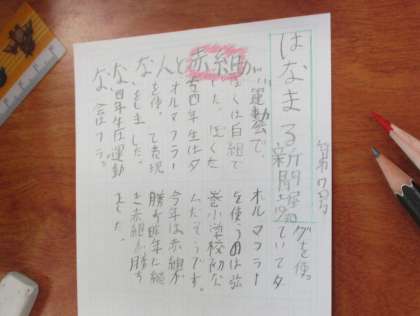 はなまる新聞
なんと赤組が
運動会で
ぼくは白組で
した。ぼくた
ち四年生はタ
オルマフラー
を使って表現
をしました。
四年生は運動
会はフラ
グを使っ
ていてタ
オルマフラー
を使うのは弥
巻小学校初な
んだそうです。
今年は赤組が
勝ち昨年に続
き赤組が勝ち
ました。